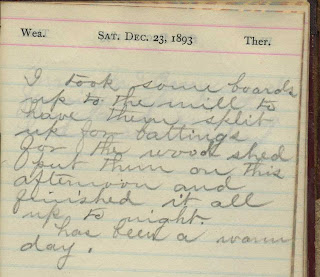 Wea. SAT. DEC. 23, 1893 Ther.
I took some boards
up to the mill to
have them split
up for battings
for the wood shed
put them on this
afternoon and
finished it all
up to night.
has been a warm
day.